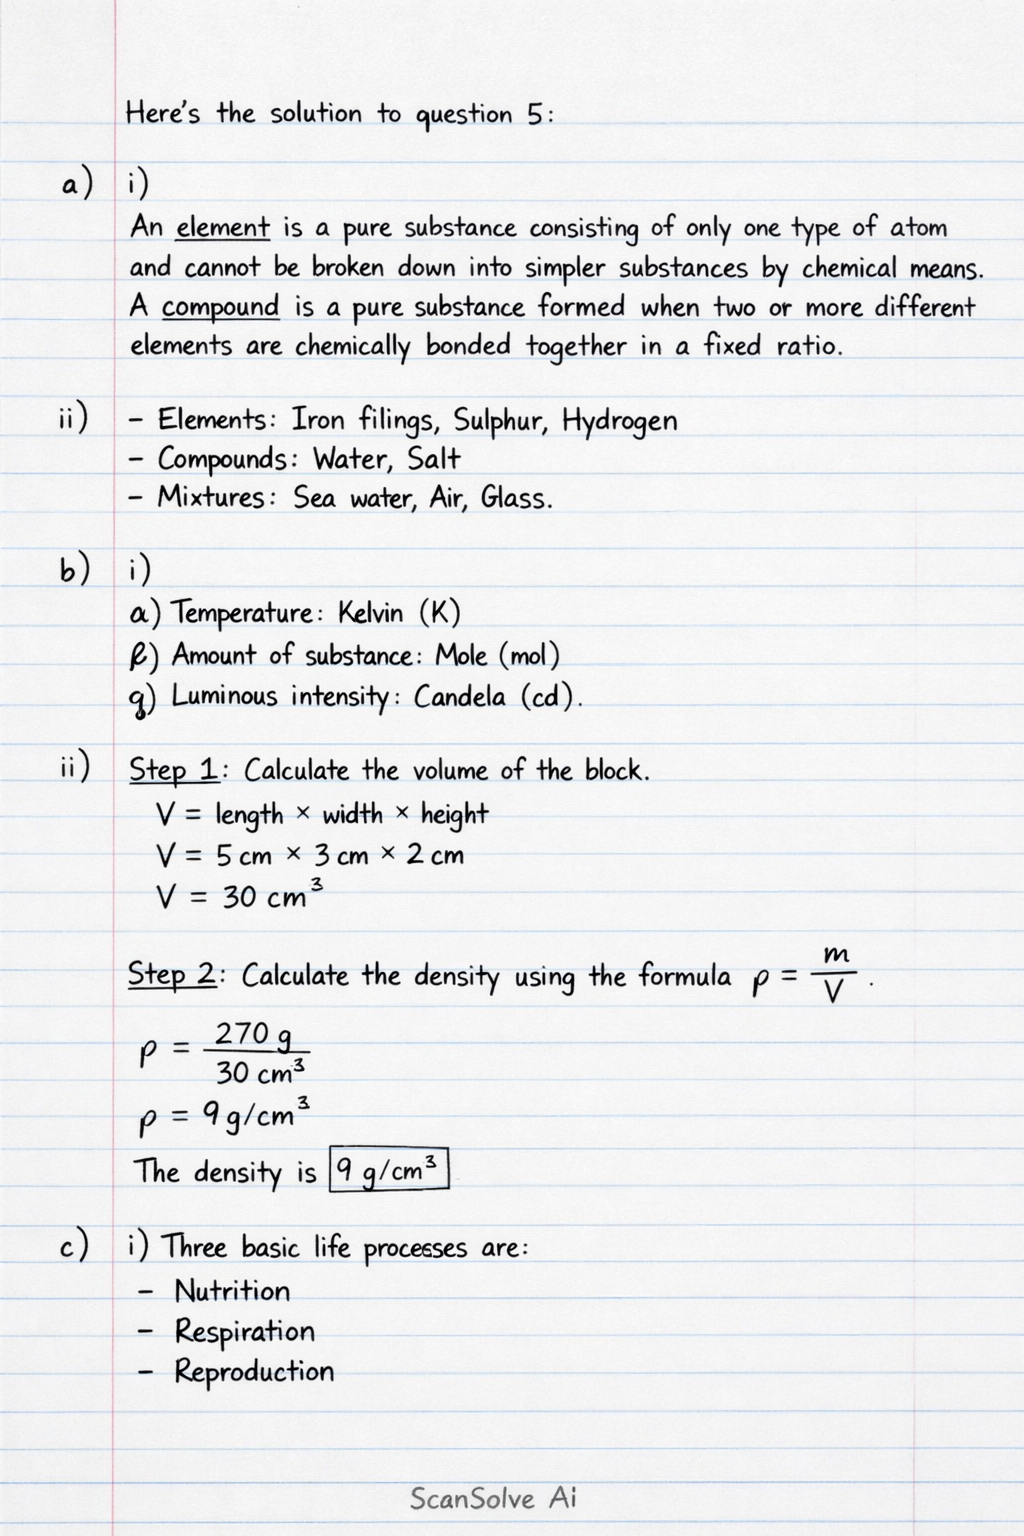 Here's the solution to question 5:
a) i)
An element is a pure substance consisting of only one type of atom
and cannot be broken down into simpler substances by chemical means.
A compound is a pure substance formed when two or more different
elements are chemically bonded together in a fixed ratio.
ii) – Elements: Iron filings, Sulphur, Hydrogen
– Compounds: Water, Salt
– Mixtures: Sea water, Air, Glass.
b) i)
a) Temperature: Kelvin (K)
β) Amount of substance: Mole (mol)
g) Luminous intensity: Candela (cd).
ii) Step 1: Calculate the volume of the block.
V = length × width × height
V = 5 cm × 3 cm × 2 cm
V = 30 cm³
Step 2: Calculate the density using the formula ρ = m/V .
ρ = 270 g / 30 cm³
ρ = 9 g/cm³
The density is 9 g/cm³
c) i) Three basic life processes are:
– Nutrition
– Respiration
– Reproduction
ScanSolve Ai